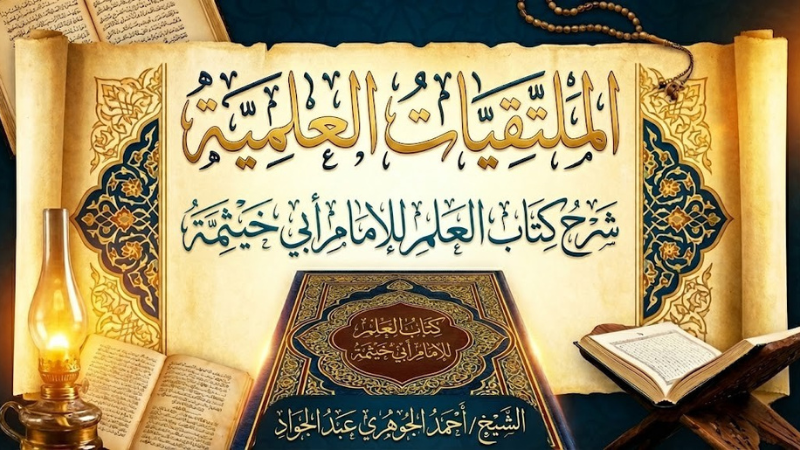 الملتقيات العلمية
شرح كتاب العلم للإمام أبي خيثمة
كتاب العلم
للإمام أبي خيثمة
الشيخ/ أحمد الجوهري عبد الجواد